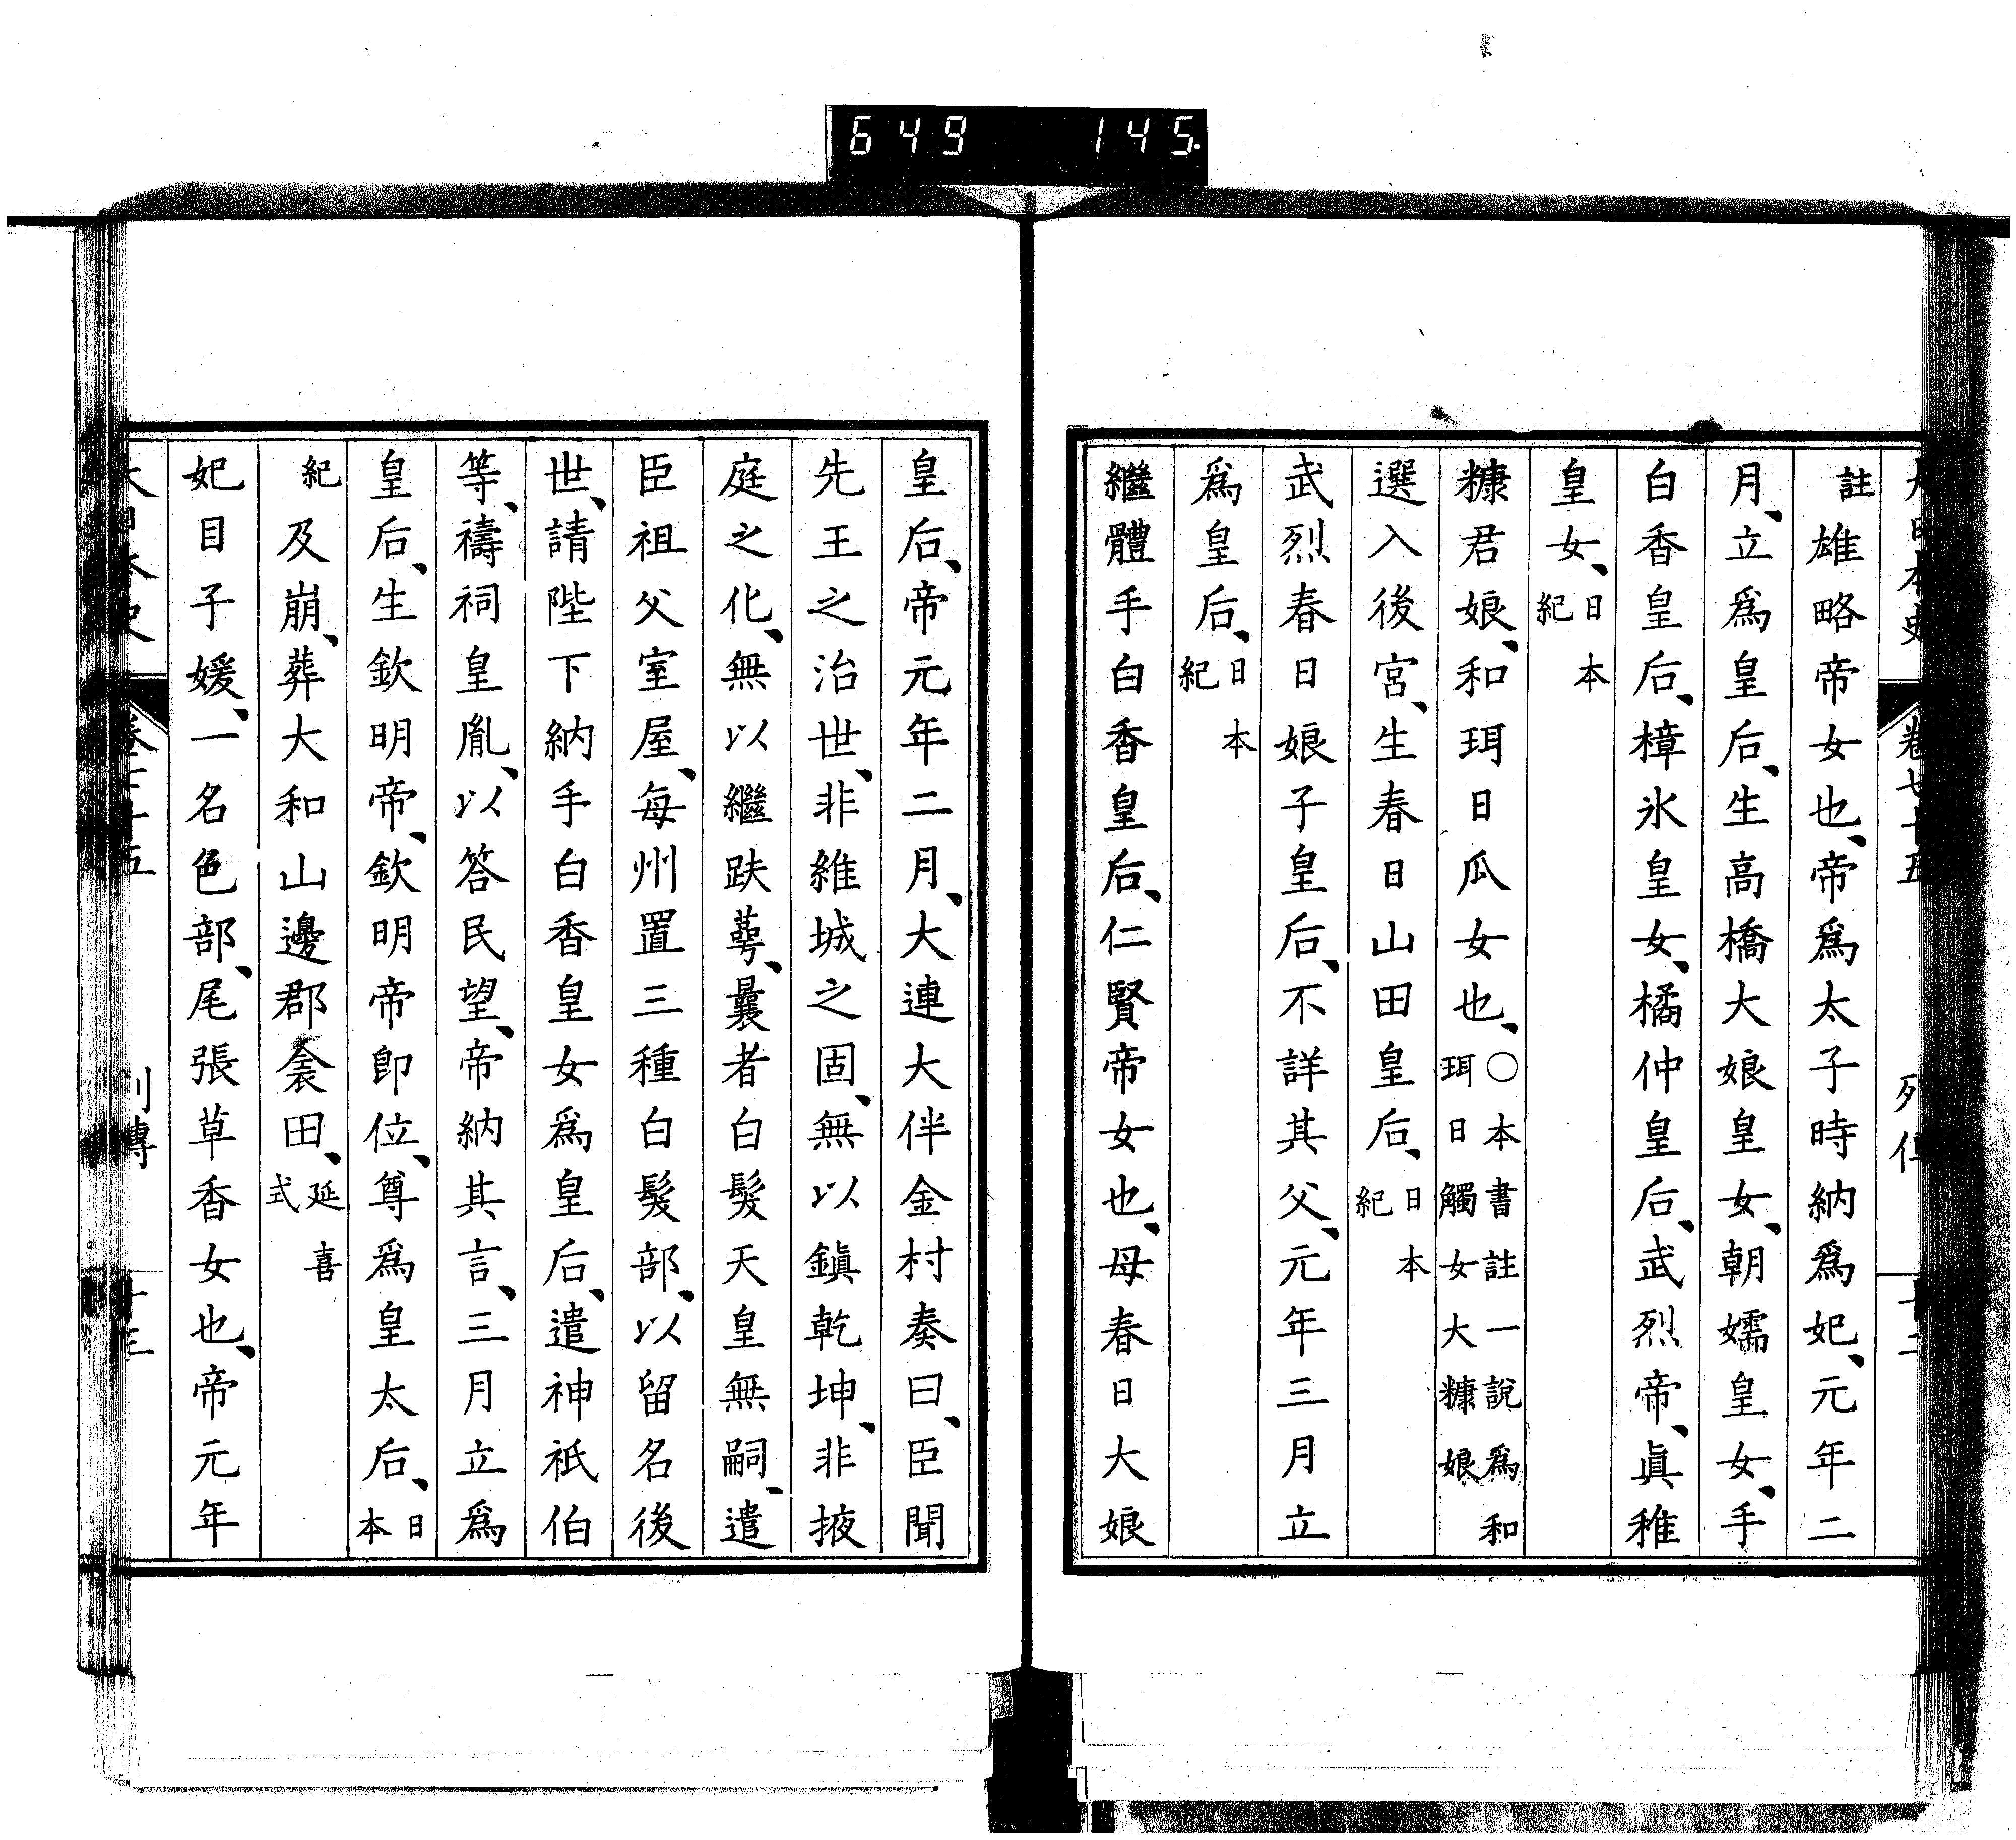 649 145
大日本史 卷七十五 列傳 十二
註雄略帝女也、帝爲太子時納爲妃、元年二
月、立爲皇后、生高橋大娘皇女、朝嬬皇女、手
白香皇后、樟氷皇女、橘仲皇后、武烈帝、眞稚
皇女、日本紀
糠君娘、和珥日爪女也、〇本書註一說爲和珥日觸女大糠娘
選入後宮、生春日山田皇后、日本紀
武烈春日娘子皇后、不詳其父、元年三月立
爲皇后、日本紀
繼體手白香皇后、仁賢帝女也、母春日大娘
皇后、帝元年二月、大連大伴金村奏曰、臣聞
先王之治世、非維城之固、無以鎭乾坤、非掖
庭之化、無以繼趺萼、曩者白髮天皇無嗣、遣
臣祖父室屋、每州置三種白髮部、以留名後
世、請陛下納手白香皇女爲皇后、遣神祇伯
等、禱祠皇胤、以答民望、帝納其言、三月立爲
皇后、生欽明帝、欽明帝卽位、尊爲皇太后、日本
紀及崩、葬大和山邊郡衾田、延喜式
妃目子媛、一名色部、尾張草香女也、帝元年
大日本史 卷七十五 列傳 十三